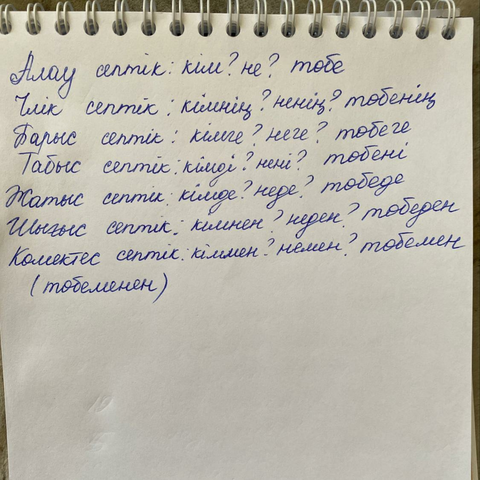 Алау септік: кім? не? тобе
Ілік септік: кімнің? ненің? тобенің
Барыс септік: кімге? неге? тобеге
Табыс септік: кімді? нені? тобені
Жатыс септік: кімде? неде? тобеде
Шығыс септік: кімнен? неден? тобеден
Комектес септік: кіммен? немен? тобемен
(тобеменен)